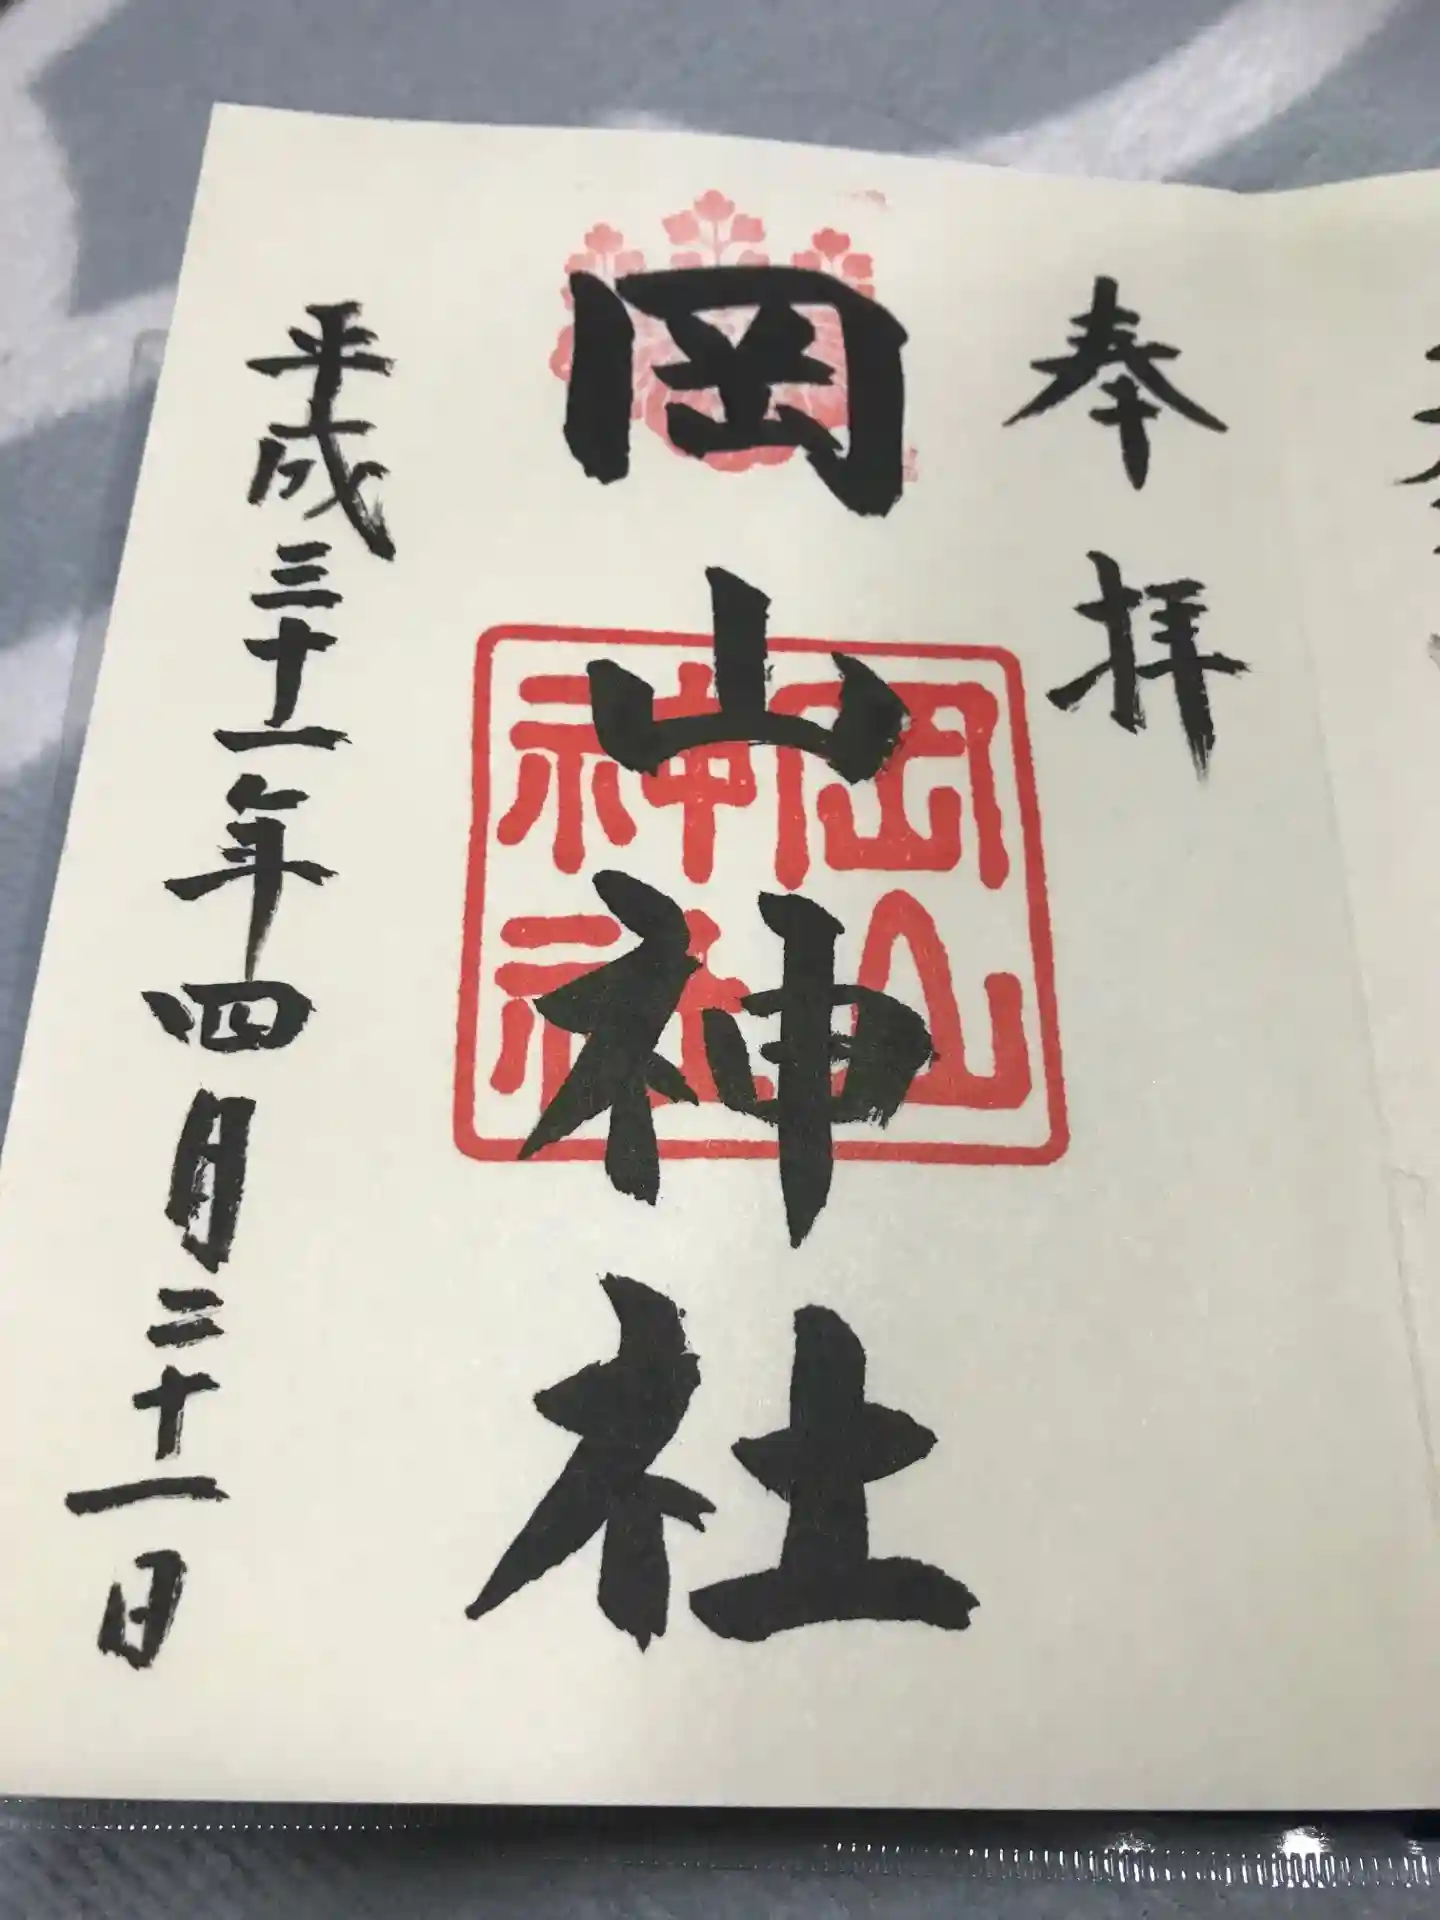 奉拝
岡山神社
岡山
神社
平成三十一年四月二十一日